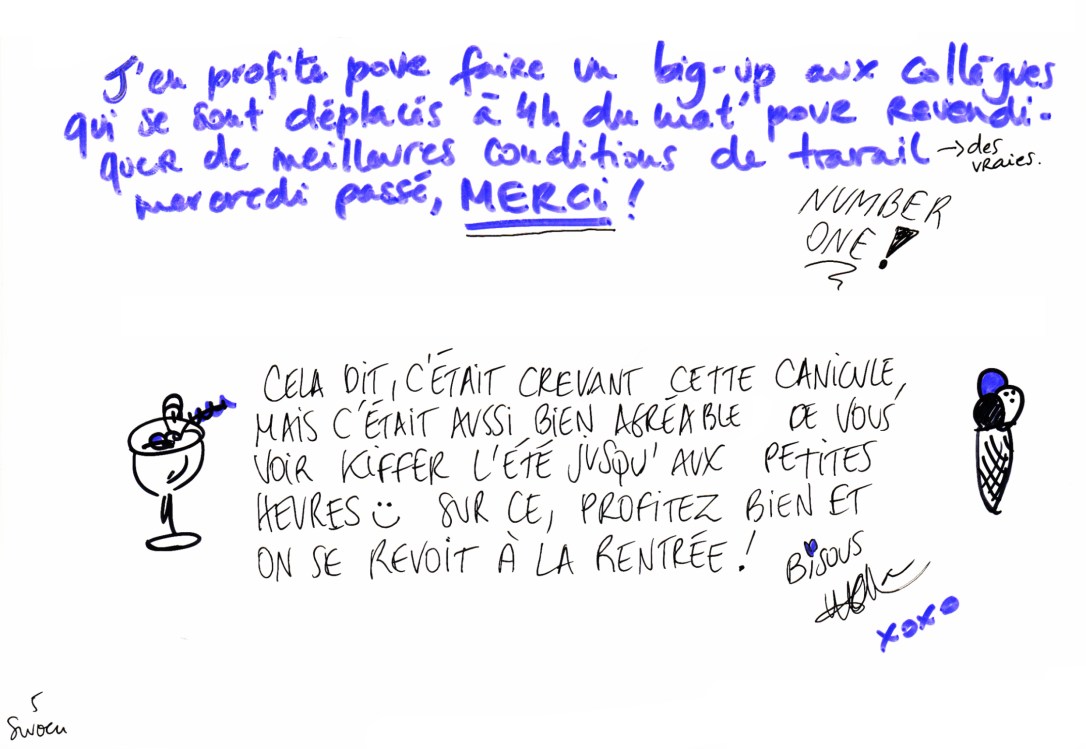 J'en profite pour faire un big-up aux collègues
qui se sont déplacés à 4h du mat' pour revendi-
quer de meilleures conditions de travail → des vraies.
mercredi passé, MERCi !
NUMBER
ONE !
CELA DIT, C'ÉTAIT CREVANT CETTE CANICULE,
MAIS C'ÉTAIT AUSSI BIEN AGRÉABLE DE VOUS
VOIR KIFFER L'ÉTÉ JUSQU'AUX PETITES
HEURES SUR CE, PROFITEZ BIEN ET
ON SE REVOIT À LA RENTRÉE !
BISOUS
xoxo
5